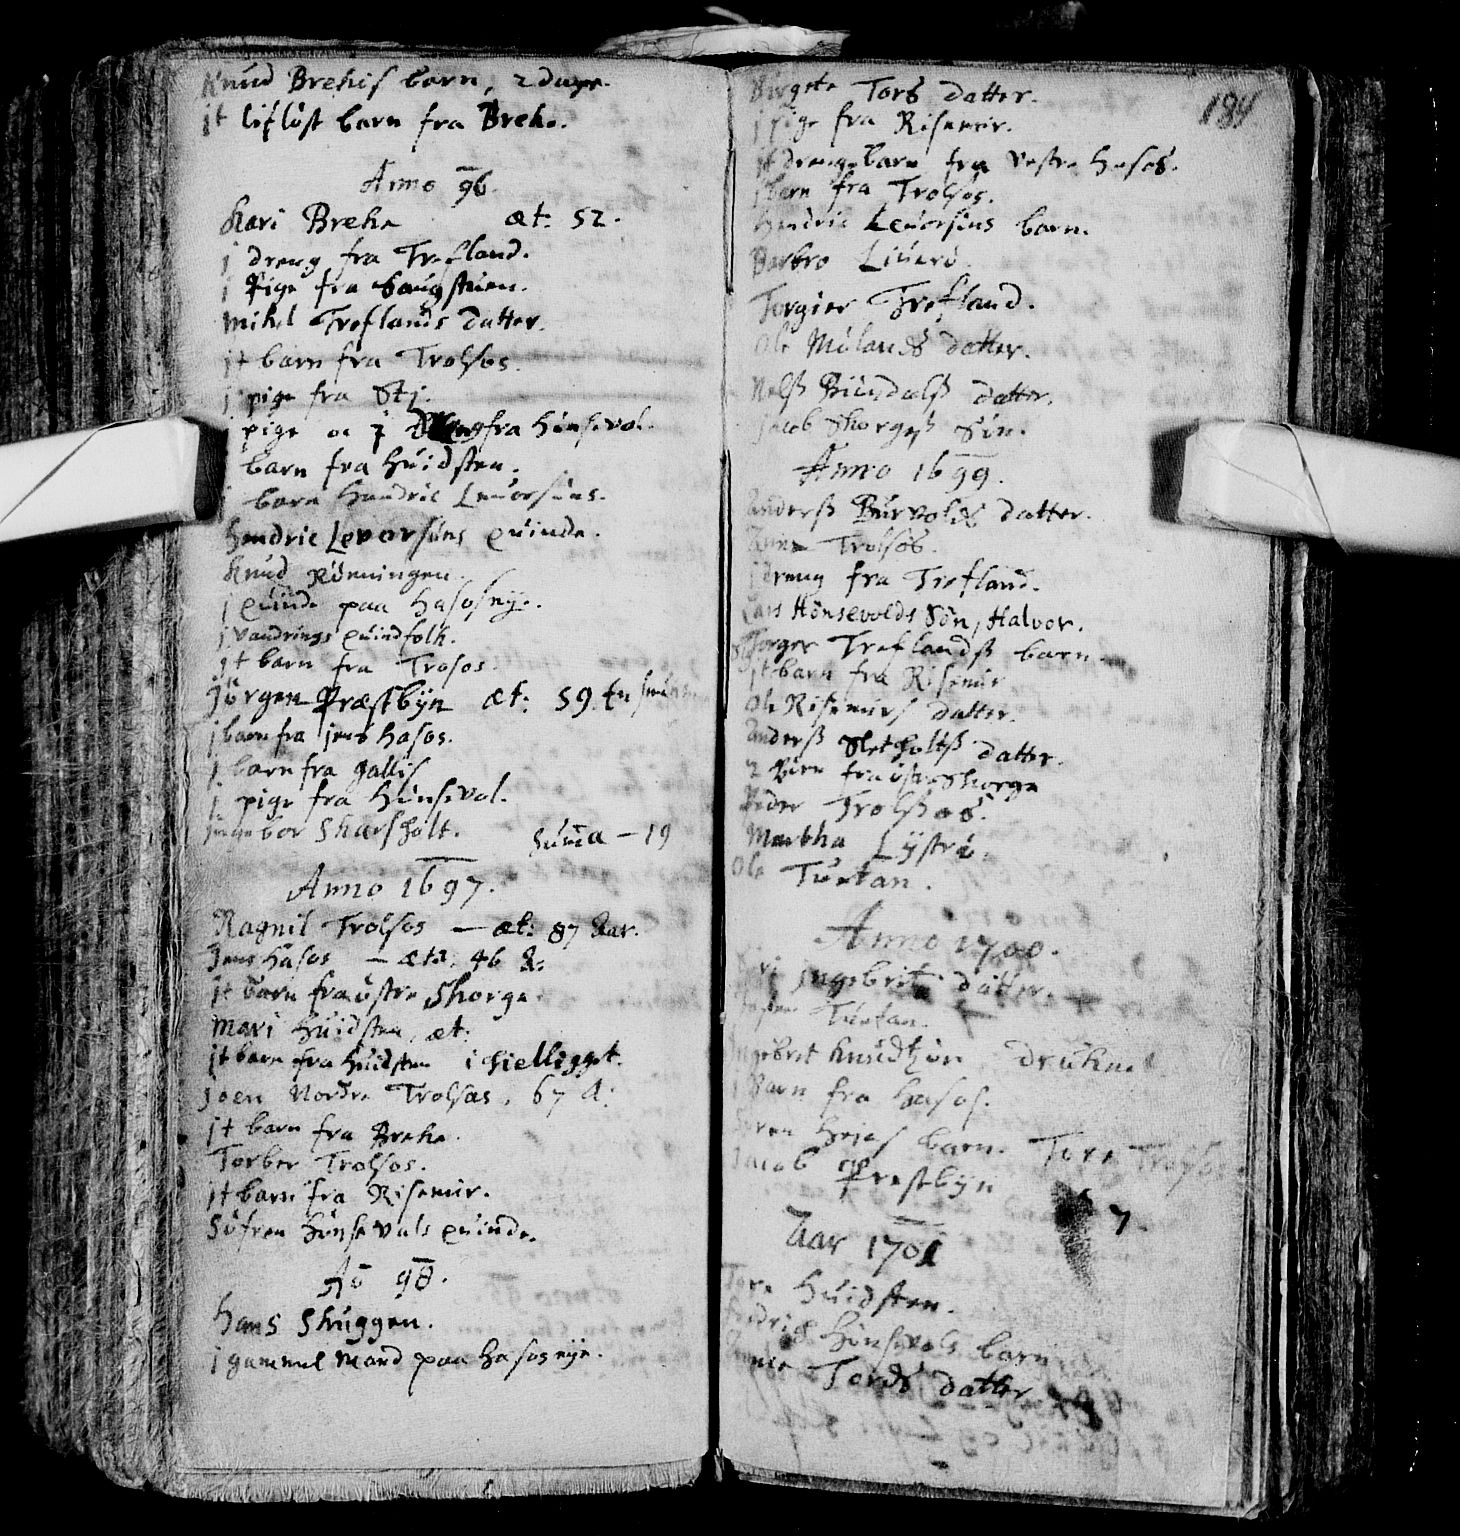 Knud Brekis barn, 2 dage.
jt lifløst barn fra Breke.
Anno 96.
Kari Breke æt: 52.
j dreng fra Trefland.
j Pige fra Haugstuen.
Mikel Treflands datter.
jt barn fra Trolsos.
j pige fra Sti.
j pige oc j fra Hunsevol.
j barn fra Huidsten.
j barn Hendric Leuorsøns.
Hendric Levorsøns quinde.
Knud Rønningen.
j quinde paa Hasosnye.
j vandrings quindfolk.
jt barn fra Trosos.
Jørgen Præstbyn æt: 59. en
j barn fra Jens Hasos.
j barn fra Gallis
j pige fra Hunsevol.
Ingebor Skarsholt. Summa — 19
Anno 1697.
Ragnil Trolsos — æt: 87 Aar.
Jens Hasos — æt: 46 A:
jt barn fra østre Skorge
Mari Huidsten, æt:
jt barn fra Huidsten i hielligget.
Joen Nordre Trolsas, 67 A:
jt barn fra Breke.
Torber Trolsos.
jt barn fra Risemir.
Søfren Hunsevals quinde.
Ao 98.
Hans Skuggen.
j gammel Mand paa Hasosnye.
184
Birgete Tors datter.
j pige fra Risemir.
jt drengebarn fra Vestre Hasos.
j barn fra Trolsos.
Hendric Leuorsøns barn.
Barbro Liuerø.
Torgier Trefland.
Ole Mølands datter.
Nelß Bundalß datter.
Jacob Skorgeß Søn.
Anno 1699.
Anderß Burvolds datter.
Anne Trolsos.
j dreng fra Trefland.
Lars Hønsevolds Søn, Halvor.
Torger Treflandß barn
jt barn fra Risemir
Ole Risemirs datter.
Anderß Sletholtß datter.
2 Børn fra østre Skorge
Peder Trolßos.
Martha Lystrø.
Ole Tuetan.
Anno 1700.
Kari Ingebrit datter.
Tuetan.
Ingebret Knudtzøn druknet
j Barn fra Hasos.
Søren Heies barn. Tore Trolsos
Jacob Prestbyn
7.
Aar 1701
Tore Huidsten.
Fredrick Hunsevols barn
Anne Tords datter